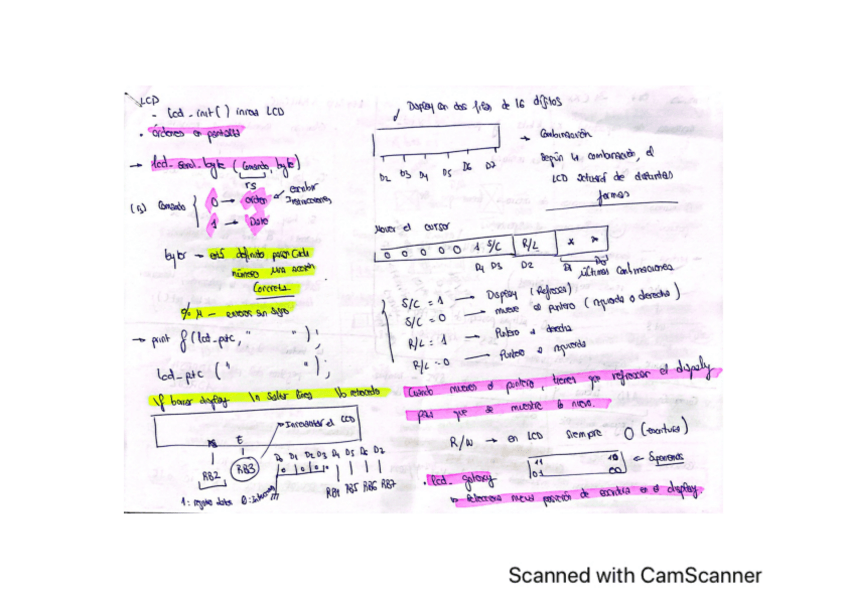 LCD
- lcd_init() inicia LCD
• órdenes a pantalla
→ lcd_send_byte (Comando, byte)
rs
(rs) Comando { 0 → orden escribir instrucciones
1 → Dato
byte → está definido para cada
número una acción
Concreta
% u – enteros sin signo
→ printf(lcd_putc, " ");
lcd_putc (" ");
\f borrar display \n Saltar línea \b retroceso
E
RB2 RB3
D0 D1 D2 D3 D4 D5 D6 D7
RB4 RB5 RB6 RB7
1: registro datos 0:
Display con dos filas de 16 dígitos
D2 D3 D4 D5 D6 D7
→ Combinación
Según la combinación, el
LCD actuará de distintas
formas
Mover el cursor
0 0 0 0 0 1 S/C R/L * *
D4 D3 D2 D1
últimas combinaciones
S/C = 1 → Display (Refresco)
S/C = 0 → mueve el puntero (izquierda o derecha)
R/L = 1 → Puntero a derecha
R/L = 0 → Puntero a izquierda
Cuando mueves el puntero, tienes que refrescar el display
para que se muestre lo nuevo.
R/W → en LCD siempre 0 (escritura)
• lcd_gotoxy
↳ Selecciona nueva posición de escritura en el display.
Scanned with CamScanner